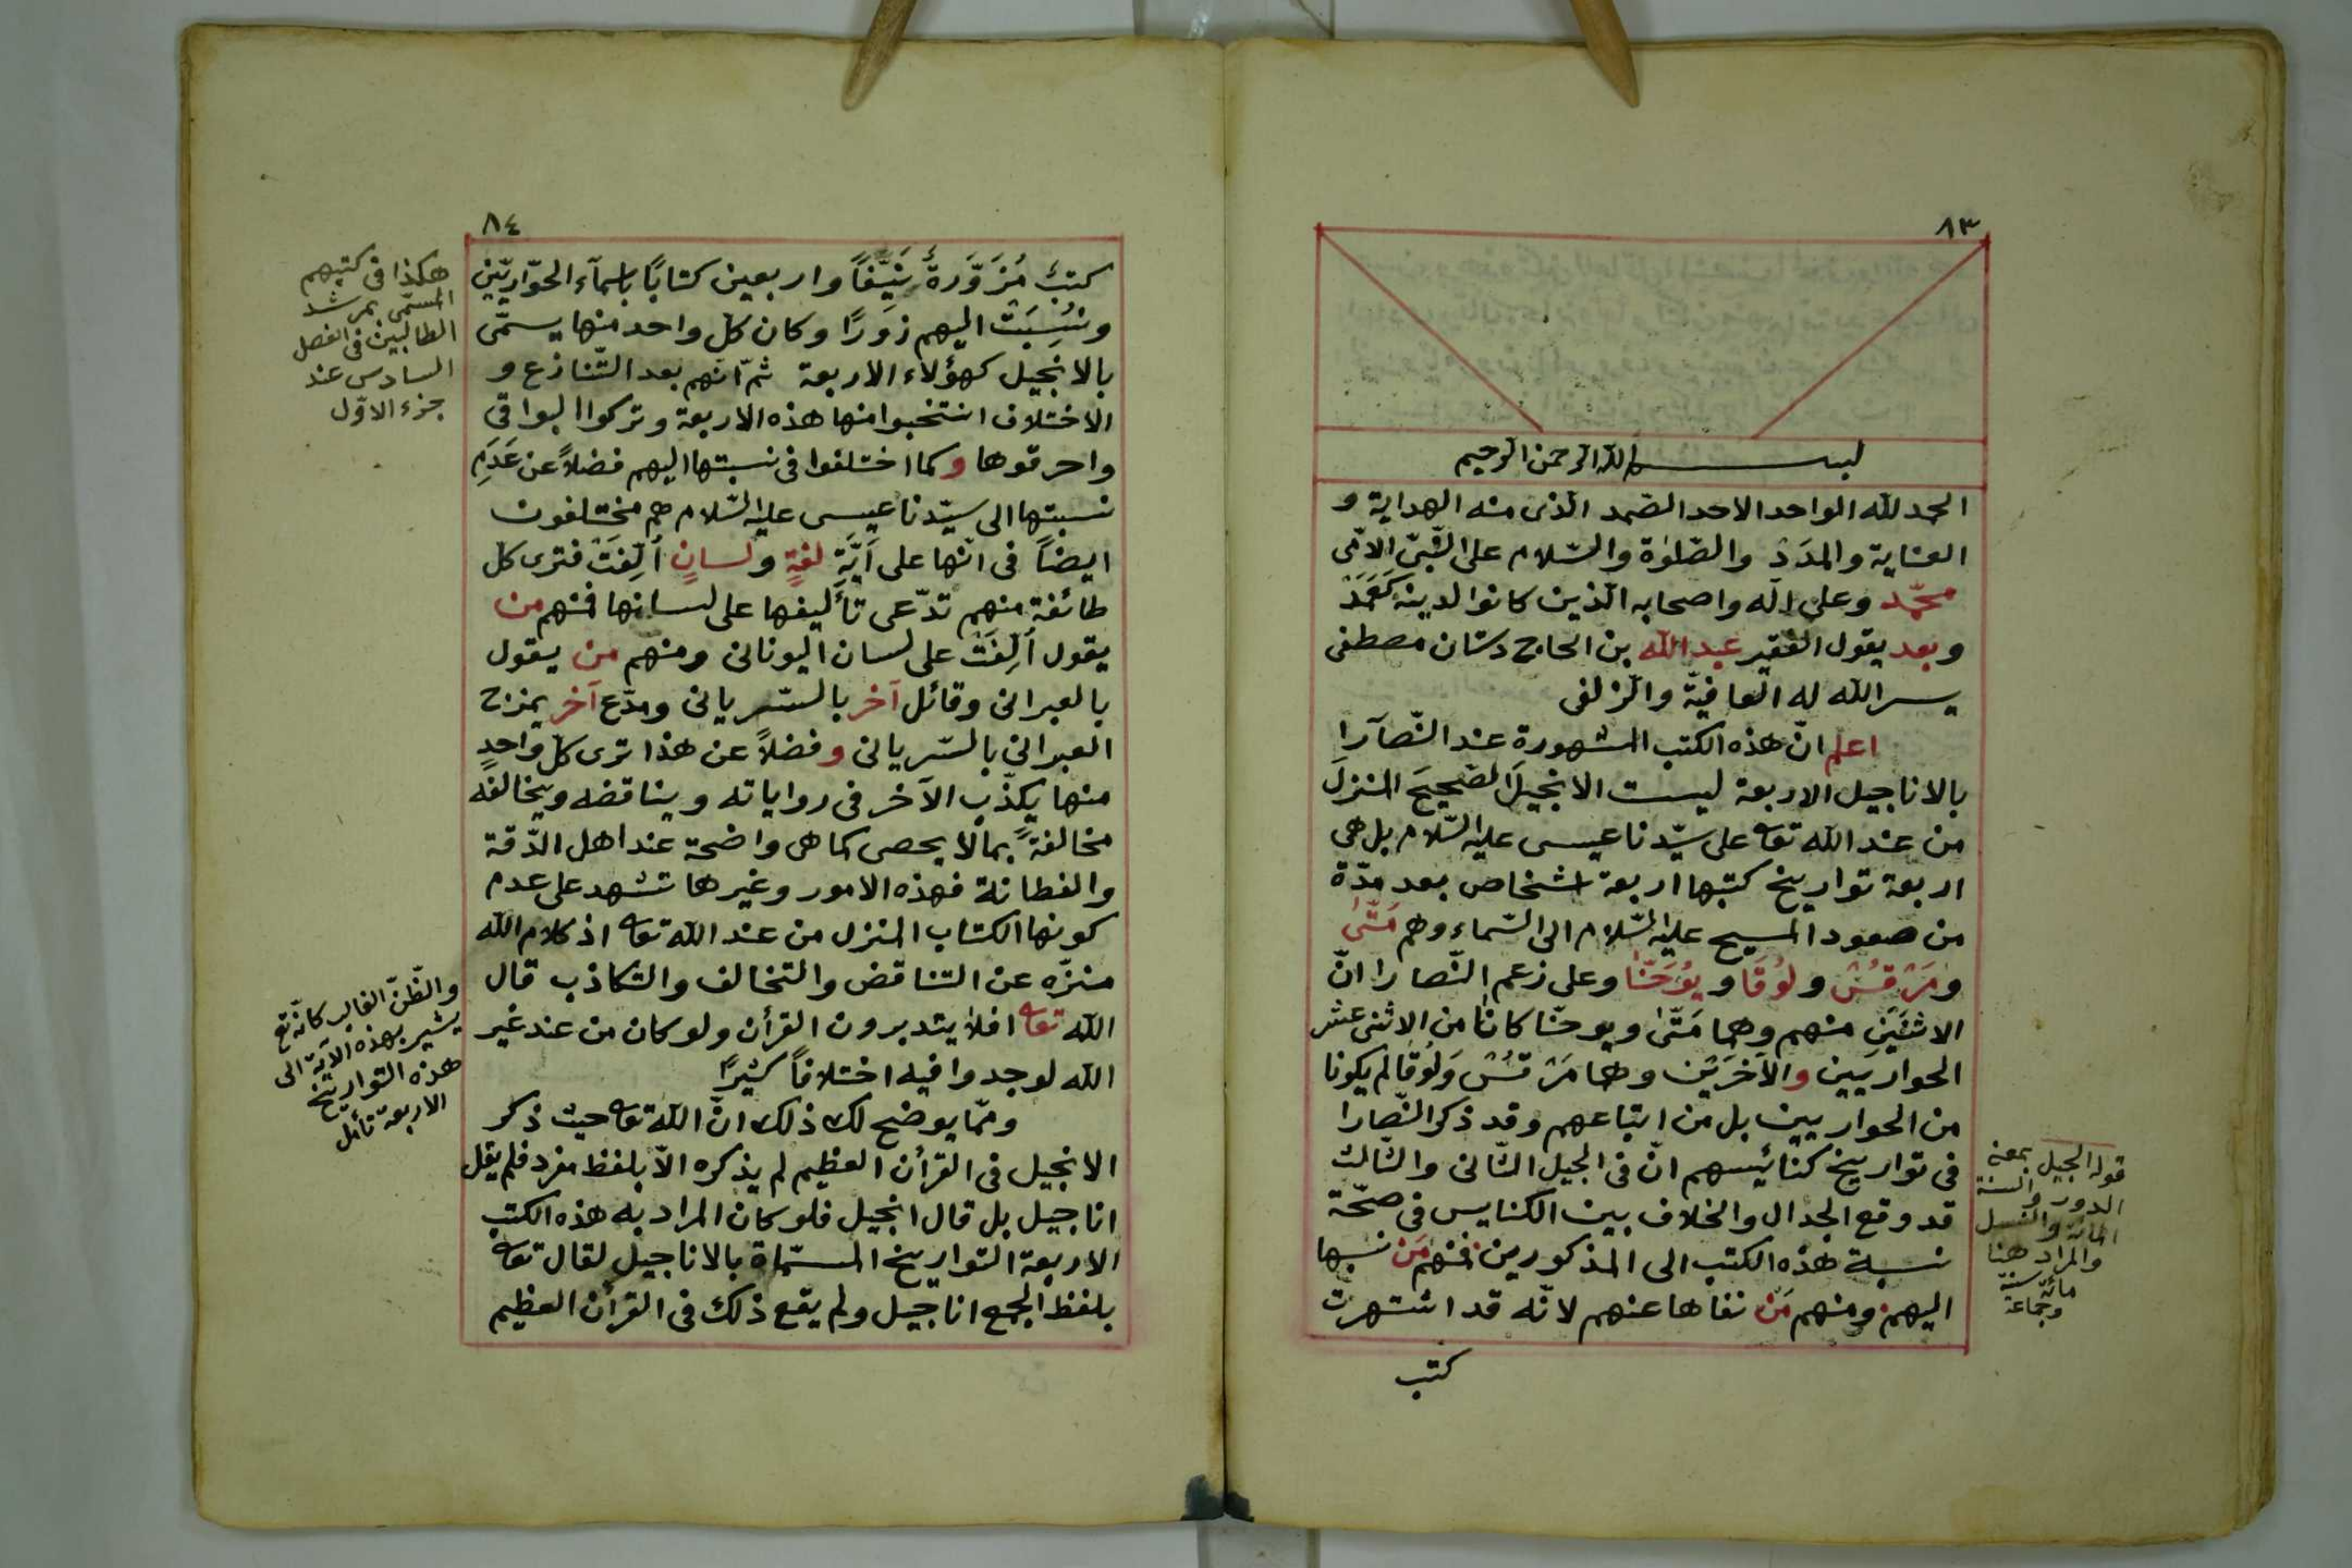 ٨٣
بسم الله الرحمن الرحيم
الحمد لله الواحد الاحد الصّمد الّذى منه الهداية و
العناية والمدَدْ والصّلوٰة والسّلام على النّبىّ الامّى
محمّد وعلى آله واصحابه الّذين كانوا لدينه كَعَمَدْ
وبعد يقول الفقير عبد الله بن الحاج دستان مصطفى
يسر الله له العافيّة والزلفى
اعلم انّ هذه الكتب المشهورة عند النّصآرا
بالاناجيل الاربعة ليست الانجيلَ الصّحيحَ المنزلَ
من عند الله تعا على سيّدنا عيسى عليه السّلام بل هى
اربعة تواريخ كتبها اربعة اشخاص بعد مدّة
من صعود المسيح عليه السّلام الى السّماء وهم مَتّٰى
ومَرْقسُسْ ولُوقَا ويُوحَنّا وعلى زعم النّصارا انّ
الاثنَيْن منهم وهما مَتّٰى ويوحنّا كانا من الاثنى عشر
الحواريين والآخَرَيْن وهما مَرْقسُسْ وَلُوقَا لم يكونا
من الحواريين بل من اتباعهم وقد ذكر النّصارا
فى تواريخ كنائيسهم انّ فى الجيل الثّانى والثّالث
قد وقع الجدال والخلاف بين الكنايس فى صحّة
نسبة هذه الكتب الى المذكورين فمنهم مَن نسبها
اليهم ومنهم مَن نفاها عنهم لانّه قد اشتهرت
كتب
قوله الجيل بمعنى
الدور والسنة
المائة والنسل
والمراد هنا
مائة سنة
وجماعة
٨٤
كتبٌ مُزَوَّرةٌ نَيِّفًا واربعين كتابًا باسمآء الحوّاريّين
ونُسِبَتْ اليهم زورًا وكان كلّ واحد منها يسمّى
بالانجيل كهؤلاء الاربعة ثمّ انّهم بعد التّنازع و
الاختلاف انتخبوا منها هذه الاربعة وتركوا البواقى
واحرقوها وكما اختلفوا فى نسبتها اليهم فضلاً عن عَدَمِ
نسبتها الى سيّدنا عيسى عليه السّلام هم مختلفون
ايضاً فى انّها على اَيَّةِ لغةٍ ولسانٍ اُلِّفَتْ فترى كلّ
طائفة منهم تدّعى تأليفها على لسانها فمنهم من
يقول اُلِّفَتْ على لسان اليونانى ومنهم من يقول
بالعبرانى وقائل آخر بالسّريانى ومدّع آخر يمزج
العبرانى بالسّريانى وفضلاً عن هذا ترى كلّ واحدٍ
منها يكذّب الآخر فى رواياته ويناقضه ويخالفه
مخالفةً بما لا يحصى كما هى واضحة عند اهل الدّقة
والفطانة فهذه الامور وغيرها تشهد على عدم
كونها الكتاب المنزل من عند الله تعا اذ كلام الله
منزّه عن التناقض والتخالف والتكاذب قال
الله تعا افلا يتدبرون القرأن ولو كان من عند غير
الله لوجدوا فيه اختلافاً كثيرًا
وممّا يوضح لك ذلك انّ الله تعا حيث ذكر
الانجيل فى القرأن العظيم لم يذكره الّا بلفظ مفرد فلم يقل
اناجيل بل قال انجيل فلو كان المراد به هذه الكتب
الاربعة التواريخ المسمّاة بالاناجيل لقال تعا
بلفظ الجمع اناجيل ولم يقع ذلك فى القرأن العظيم
هكذا فى كتبهم
المسمّى بمرشد
الطالبين فى الفصل
السادس عند
جزء الاوّل
والظّنّ الغالب كانّه تع
يشير بهذه الآية الى
هذه التواريخ
الاربعة تأمل